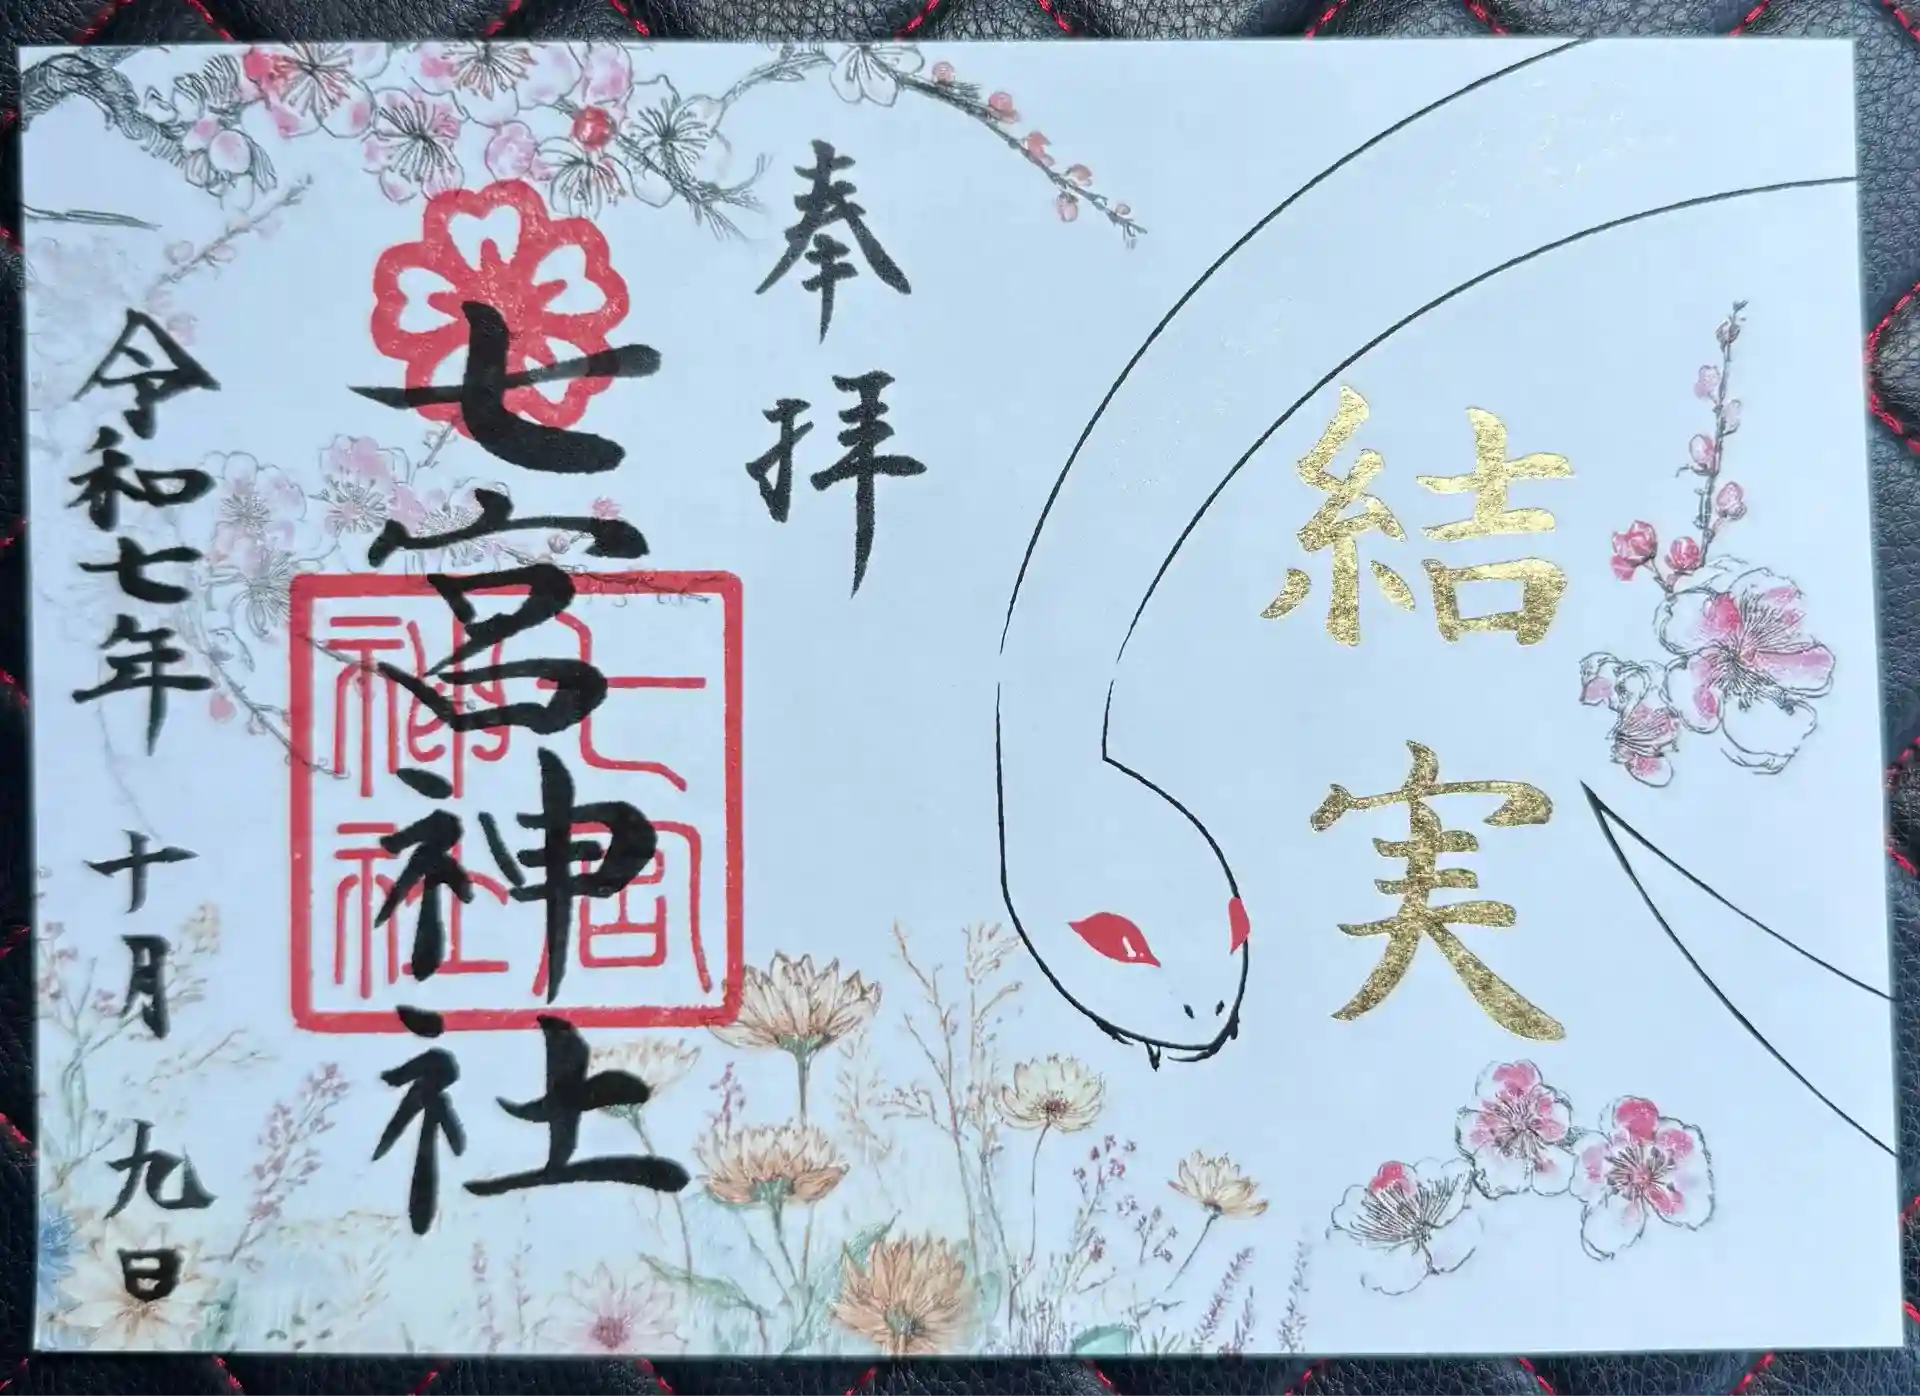 結実
奉拝
七宮神社
七宮
神社
令和七年十月九日